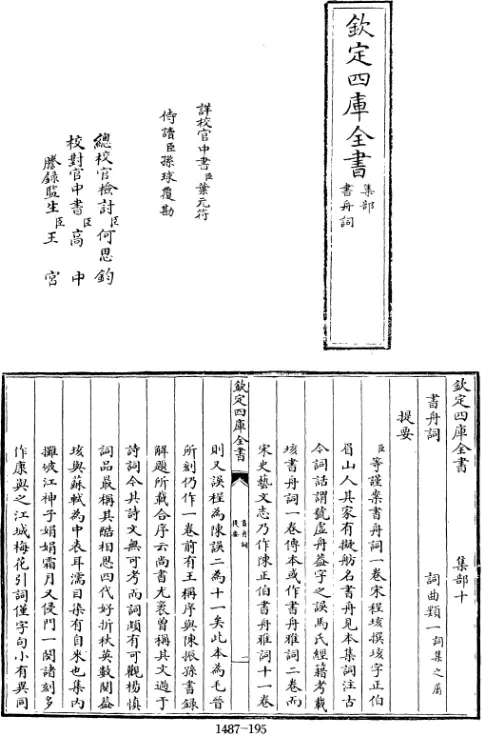 欽定四庫全書
集部
書舟詞
詳校官中書臣葉元符
侍讀臣孫球覆勘
總校官檢討臣何思鈞
校對官中書臣高中
謄錄監生臣王宮
欽定四庫全書
集部十
書舟詞
詞曲類一詞集之屬
提要
臣等謹案書舟詞一卷宋程垓撰垓字正伯
眉山人其家有擬舫名書舟見本集詞注古
今詞話謂號虛舟葢字之誤馬氏經籍考載
垓書舟詞一卷傳本或作書舟雅詞二卷而
宋史藝文志乃作陳正伯書舟雅詞十一卷
欽定四庫全書
書舟詞
提要
一
則又誤程為陳誤二為十一矣此本為毛晉
所刻仍作一卷前有王稱序與陳振孫書錄
解題所載合序云尚書尤袤曾稱其文過于
詩詞今其詩文無可考而詞頗有可觀楊慎
詞品最稱其酷相思四代好折秋英數闋葢
垓與蘇軾為中表耳濡目染有自來也集內
攤破江神子娟娟霜月又侵門一闋諸刻多
作康與之江城梅花引詞僅字句小有異同
1487-195